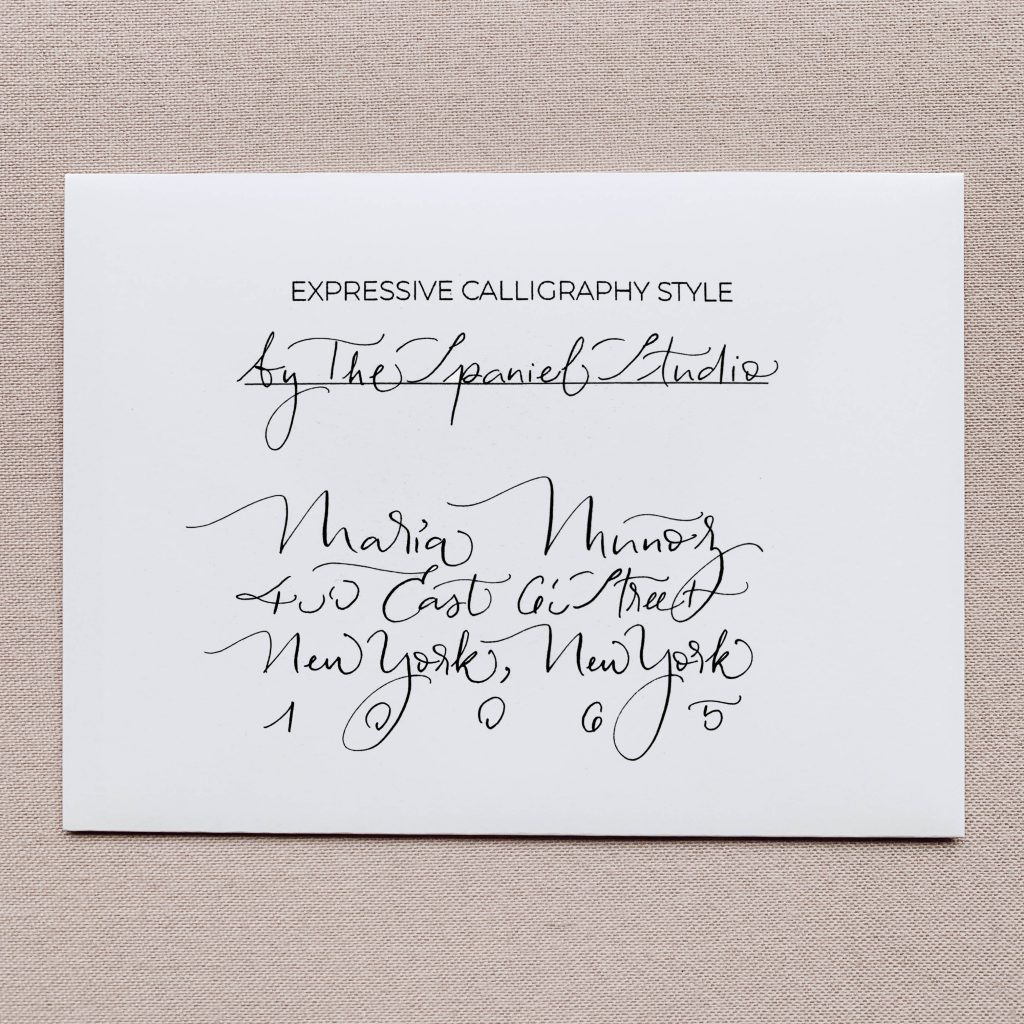 EXPRESSIVE CALLIGRAPHY STYLE
by The Spaniel Studio
María Muñoz
400 East Street
New York, New York
10065